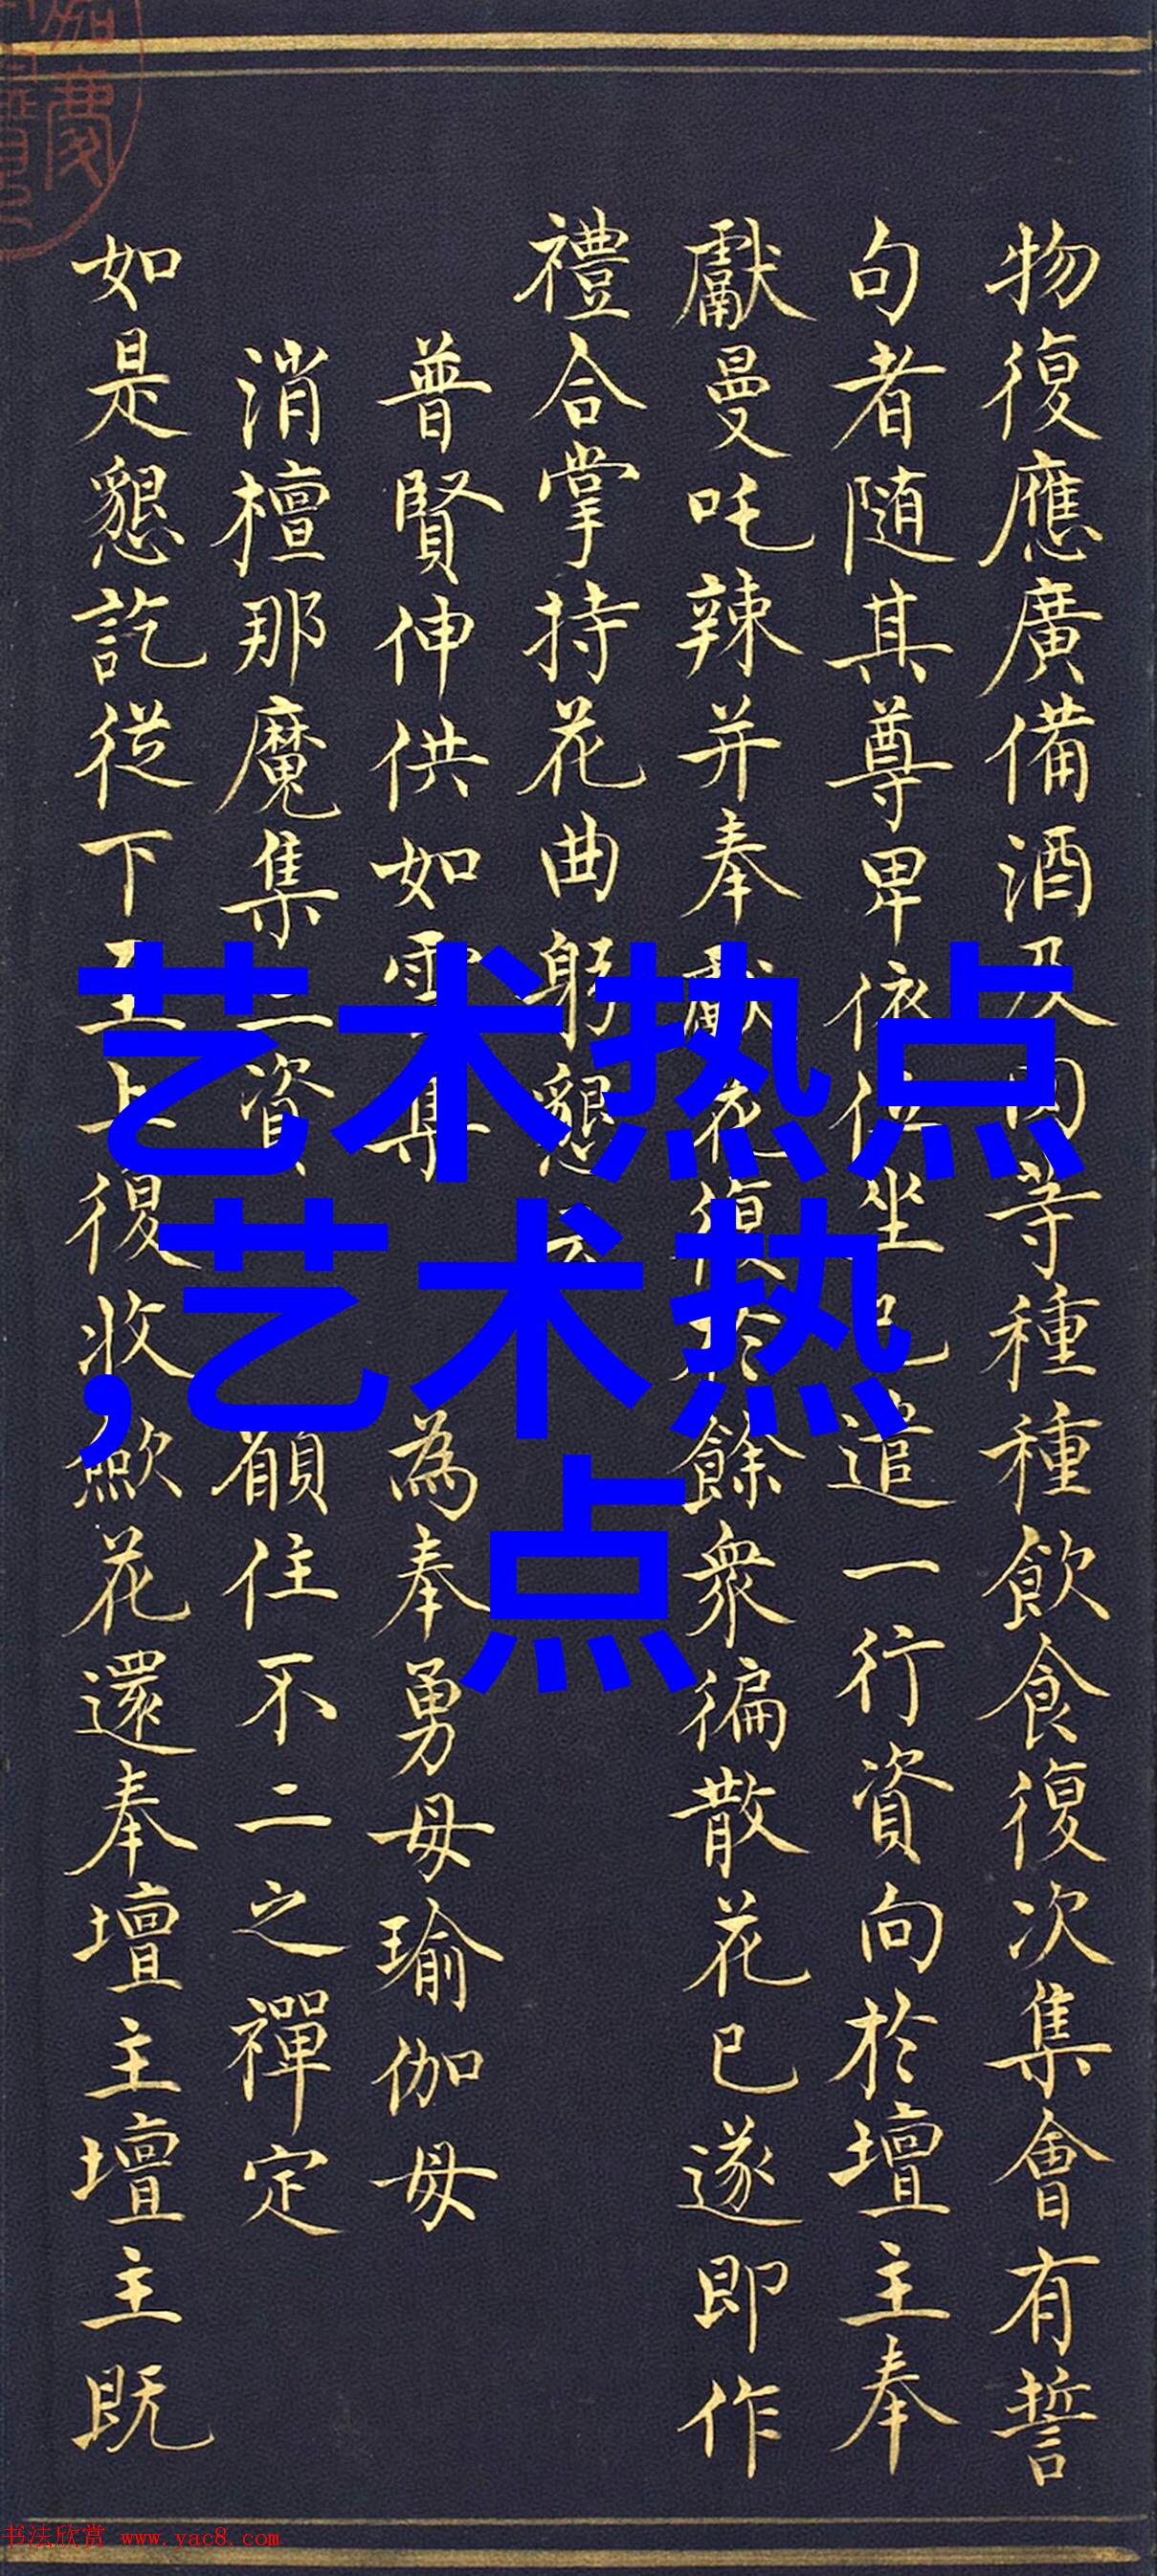 物復應廣備酒及肉等種種飲食復次集會有誓
句者随其尊卑依位坐已遣一行資向於壇主奉
獻曼吒辣并奉獻花復於餘衆徧散花已遂即作
禮合掌持花曲躬懇云
普賢伸供如雲集 為奉勇母瑜伽母
消檀那魔集二資 願住不二之禪定
如是懇訖從下至上復收歛花還奉壇主壇主既
艺术热点
,艺术热
点
书法欣赏 www.yac8.com